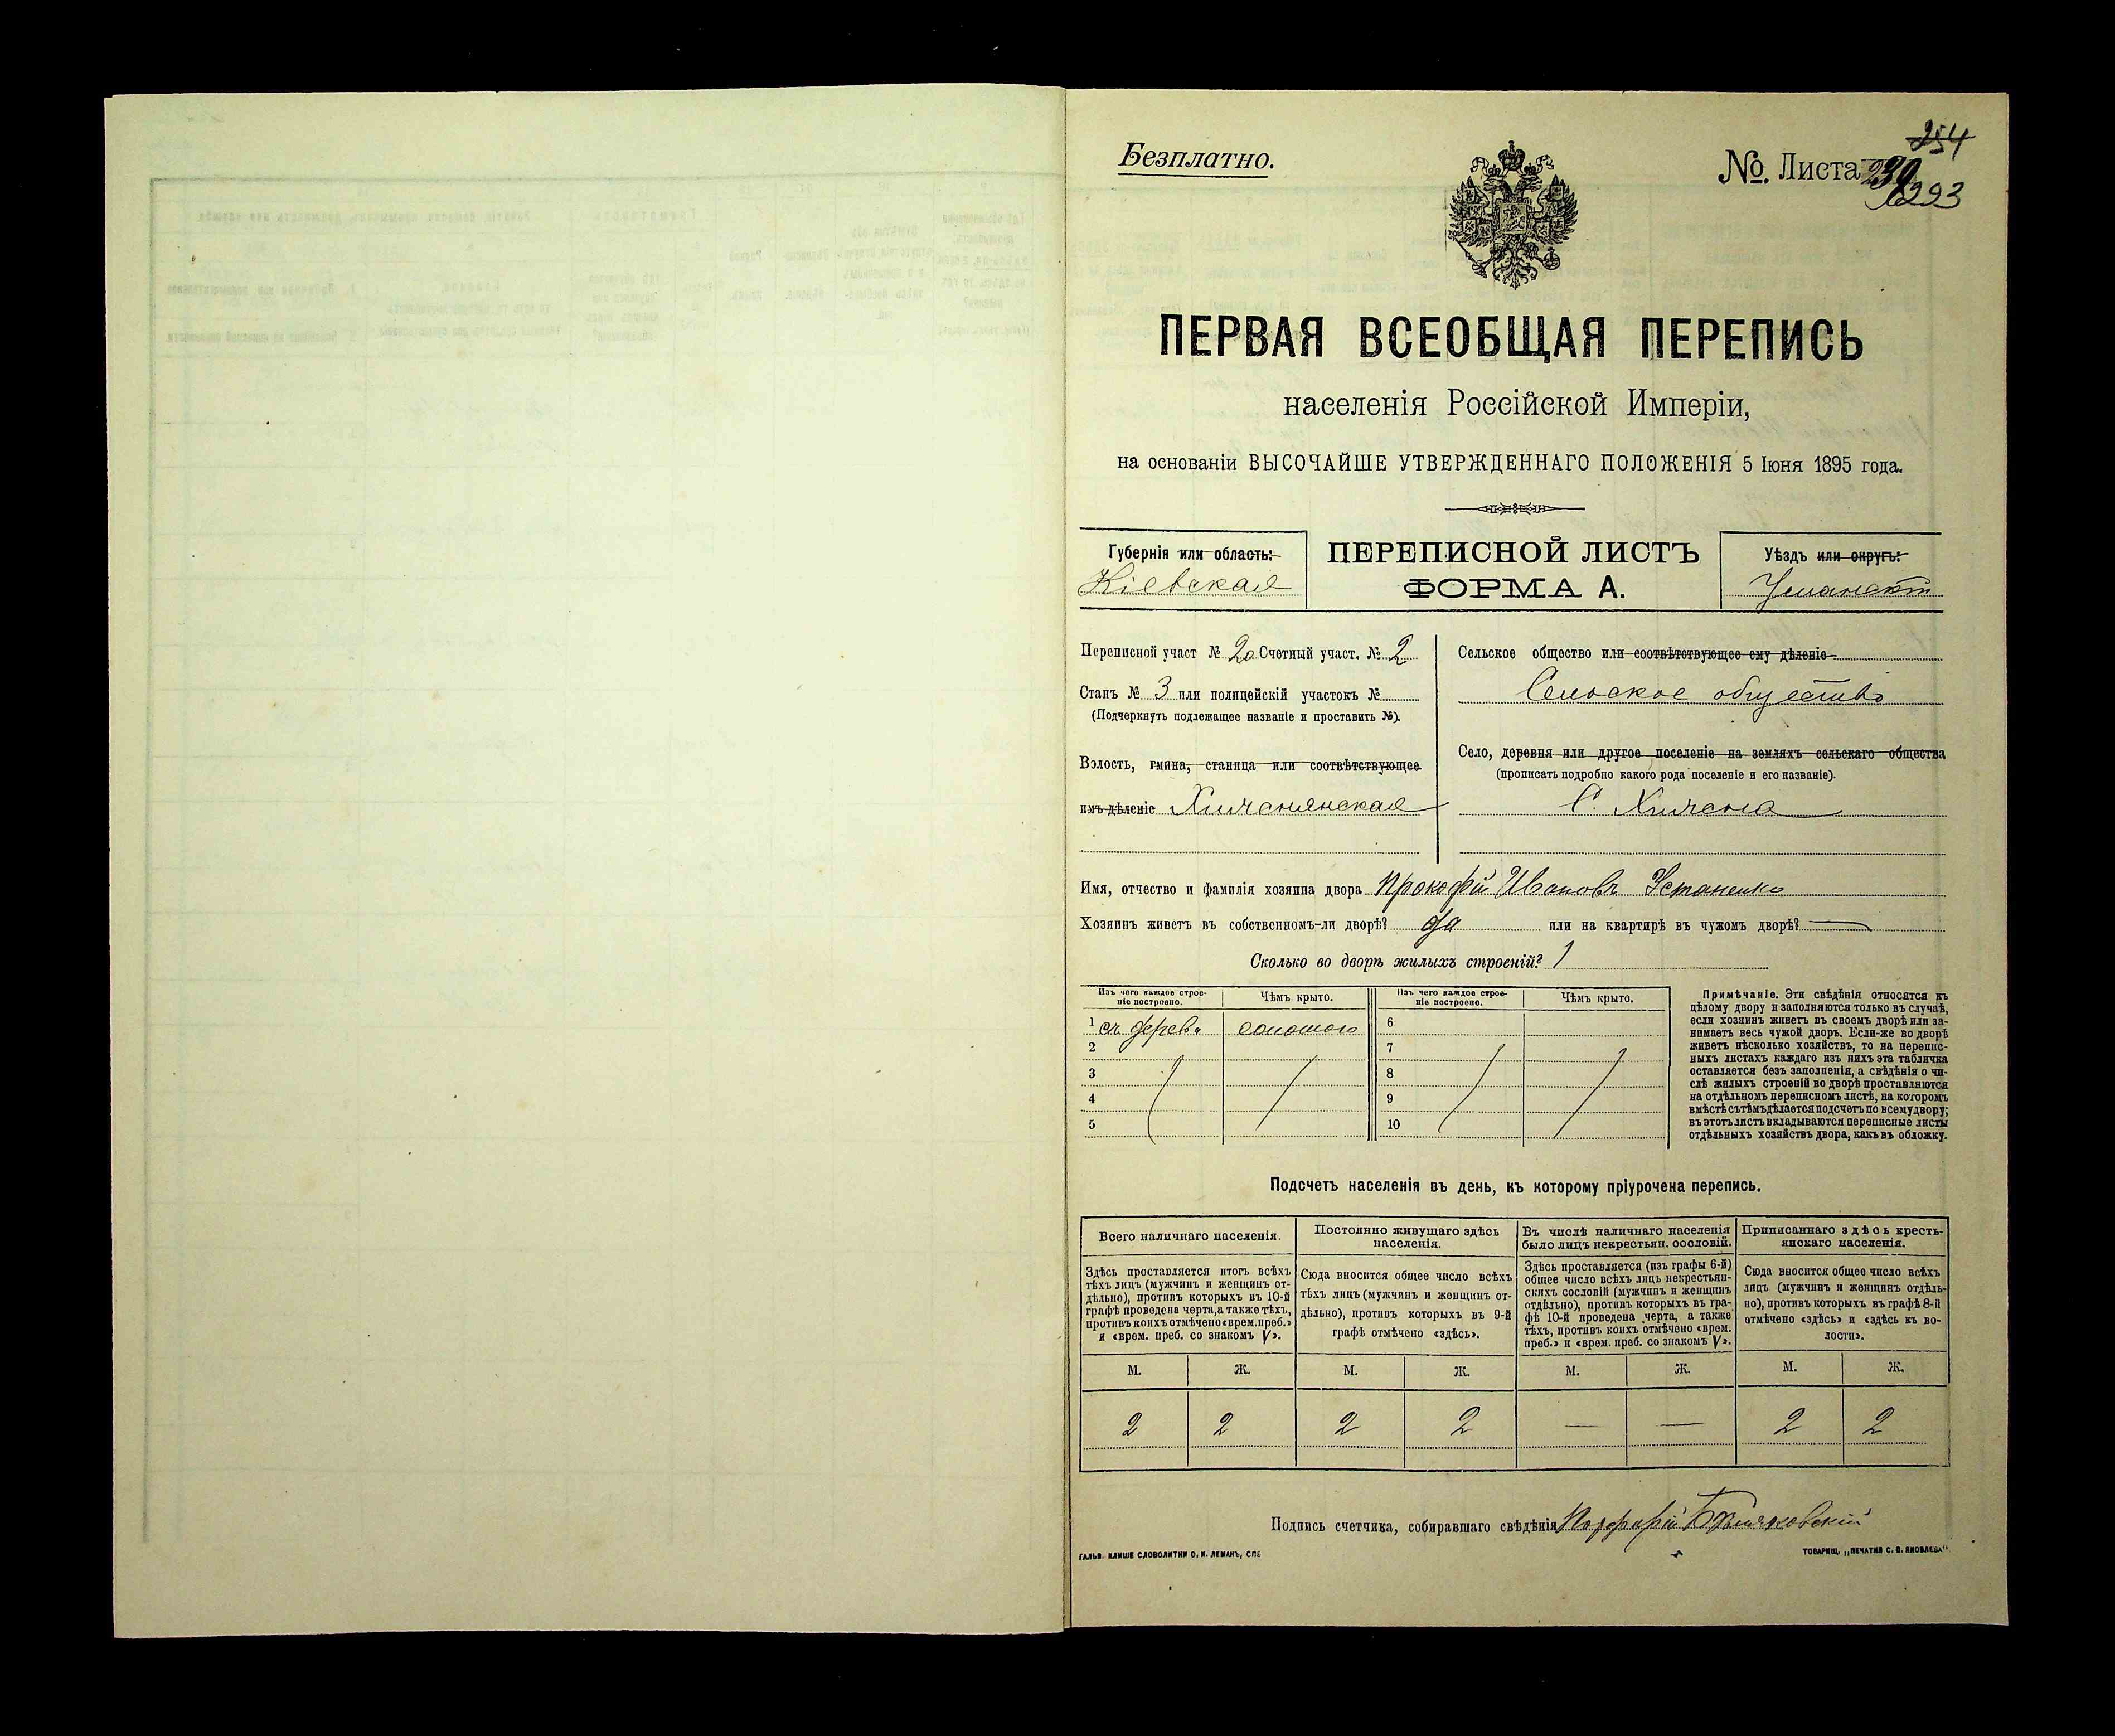 Безплатно.
254
№ Листа 239
293
ПЕРВАЯ ВСЕОБЩАЯ ПЕРЕПИСЬ
населенія Россійской Имперіи,
на основаніи ВЫСОЧАЙШЕ УТВЕРЖДЕННАГО ПОЛОЖЕНІЯ 5 Іюня 1895 года.
Губернія или область:
Кіевская
ПЕРЕПИСНОЙ ЛИСТЪ
ФОРМА А.
Уѣздъ или округъ:
Уманскій
Переписной участ № 20 Счетный участ. № 2
Станъ № 3 или полицейскій участокъ №
(Подчеркнуть подлежащее названіе и проставить №).
Волость, гмина, станица или соотвѣтствующее
имъ дѣленіе
Сельское общество или соотвѣтствующее ему дѣленіе
Сельское общество
Село, деревня или другое поселеніе на земляхъ сельскаго общества
(прописать подробно какого рода поселеніе и его названіе).
С.
Имя, отчество и фамилія хозяина двора Прокофій Ивановъ Устаненко
Хозяинъ живетъ въ собственномъ-ли дворѣ? да или на квартирѣ въ чужомъ дворѣ? —
Сколько во дворѣ жилыхъ строеній? 1
Изъ чего каждое строеніе построено. Чѣмъ крыто. Изъ чего каждое строеніе построено. Чѣмъ крыто.
1 съ дерева соломою 6
2 7
3 8
4 9
5 10
Примѣчаніе. Эти свѣдѣнія относятся къ
цѣлому двору и заполняются только въ случаѣ,
если хозяинъ живетъ въ своемъ дворѣ или за-
нимаетъ весь чужой дворъ. Если-же во дворѣ
живетъ нѣсколько хозяйствъ, то на перепис-
ныхъ листахъ каждаго изъ нихъ эта табличка
оставляется безъ заполненія, а свѣдѣнія о чи-
слѣ жилыхъ строеній во дворѣ проставляются
на отдѣльномъ переписномъ листѣ, на которомъ
вмѣстѣ съ тѣмъ дѣлается подсчетъ по всему двору;
въ этотъ листъ вкладываются переписные листы
отдѣльныхъ хозяйствъ двора, какъ въ обложку.
Подсчетъ населенія въ день, къ которому пріурочена перепись.
Всего наличнаго населенія.
Здѣсь проставляется итогъ всѣхъ
тѣхъ лицъ (мужчинъ и женщинъ от-
дѣльно), противъ которыхъ въ 10-й
графѣ проведена черта, а также тѣхъ,
противъ коихъ отмѣчено «врем. преб.»
и «врем. преб. со знакомъ V».
Постоянно живущаго здѣсь
населенія.
Сюда вносится общее число всѣхъ
тѣхъ лицъ (мужчинъ и женщинъ от-
дѣльно), противъ которыхъ въ 9-й
графѣ отмѣчено «здѣсь».
Въ числѣ наличнаго населенія
было лицъ некрестьян. сословій.
Здѣсь проставляется (изъ графы 6-й)
общее число всѣхъ лицъ некрестьян-
скихъ сословій (мужчинъ и женщинъ
отдѣльно), противъ которыхъ въ гра-
фѣ 10-й проведена черта, а также
тѣхъ, противъ коихъ отмѣчено «врем.
преб.» и «врем. преб. со знакомъ V».
Приписаннаго здѣсь кресть-
янскаго населенія.
Сюда вносится общее число всѣхъ
лицъ (мужчинъ и женщинъ отдѣль-
но), противъ которыхъ въ графѣ 8-й
отмѣчено «здѣсь» и «здѣсь къ во-
лости».
М. Ж. М. Ж. М. Ж. М. Ж.
2 2 2 2 — — 2 2
Подпись счетчика, собиравшаго свѣдѣнія
ГАЛЬВ. КЛИШЕ СЛОВОЛИТНИ О. И. ЛЕМАНЪ, СПБ
ТОВАРИЩ. „ПЕЧАТНЯ С. П. ЯКОВЛЕВА"